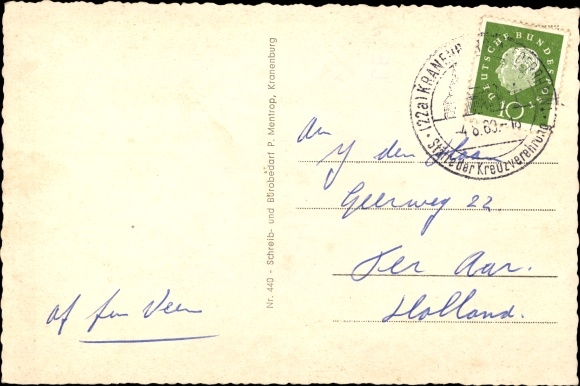 Nr. 440 - Schreib- und Bürobedarf P. Mentrop, Kranenburg
DEUTSCHE BUNDESPOST
10
(22a) KRANENBURG
4.8.60.-18
Stätte der Kreuzverehrung
An
den Haan
Geerweg 22
Ter Aar.
Holland.
Veen